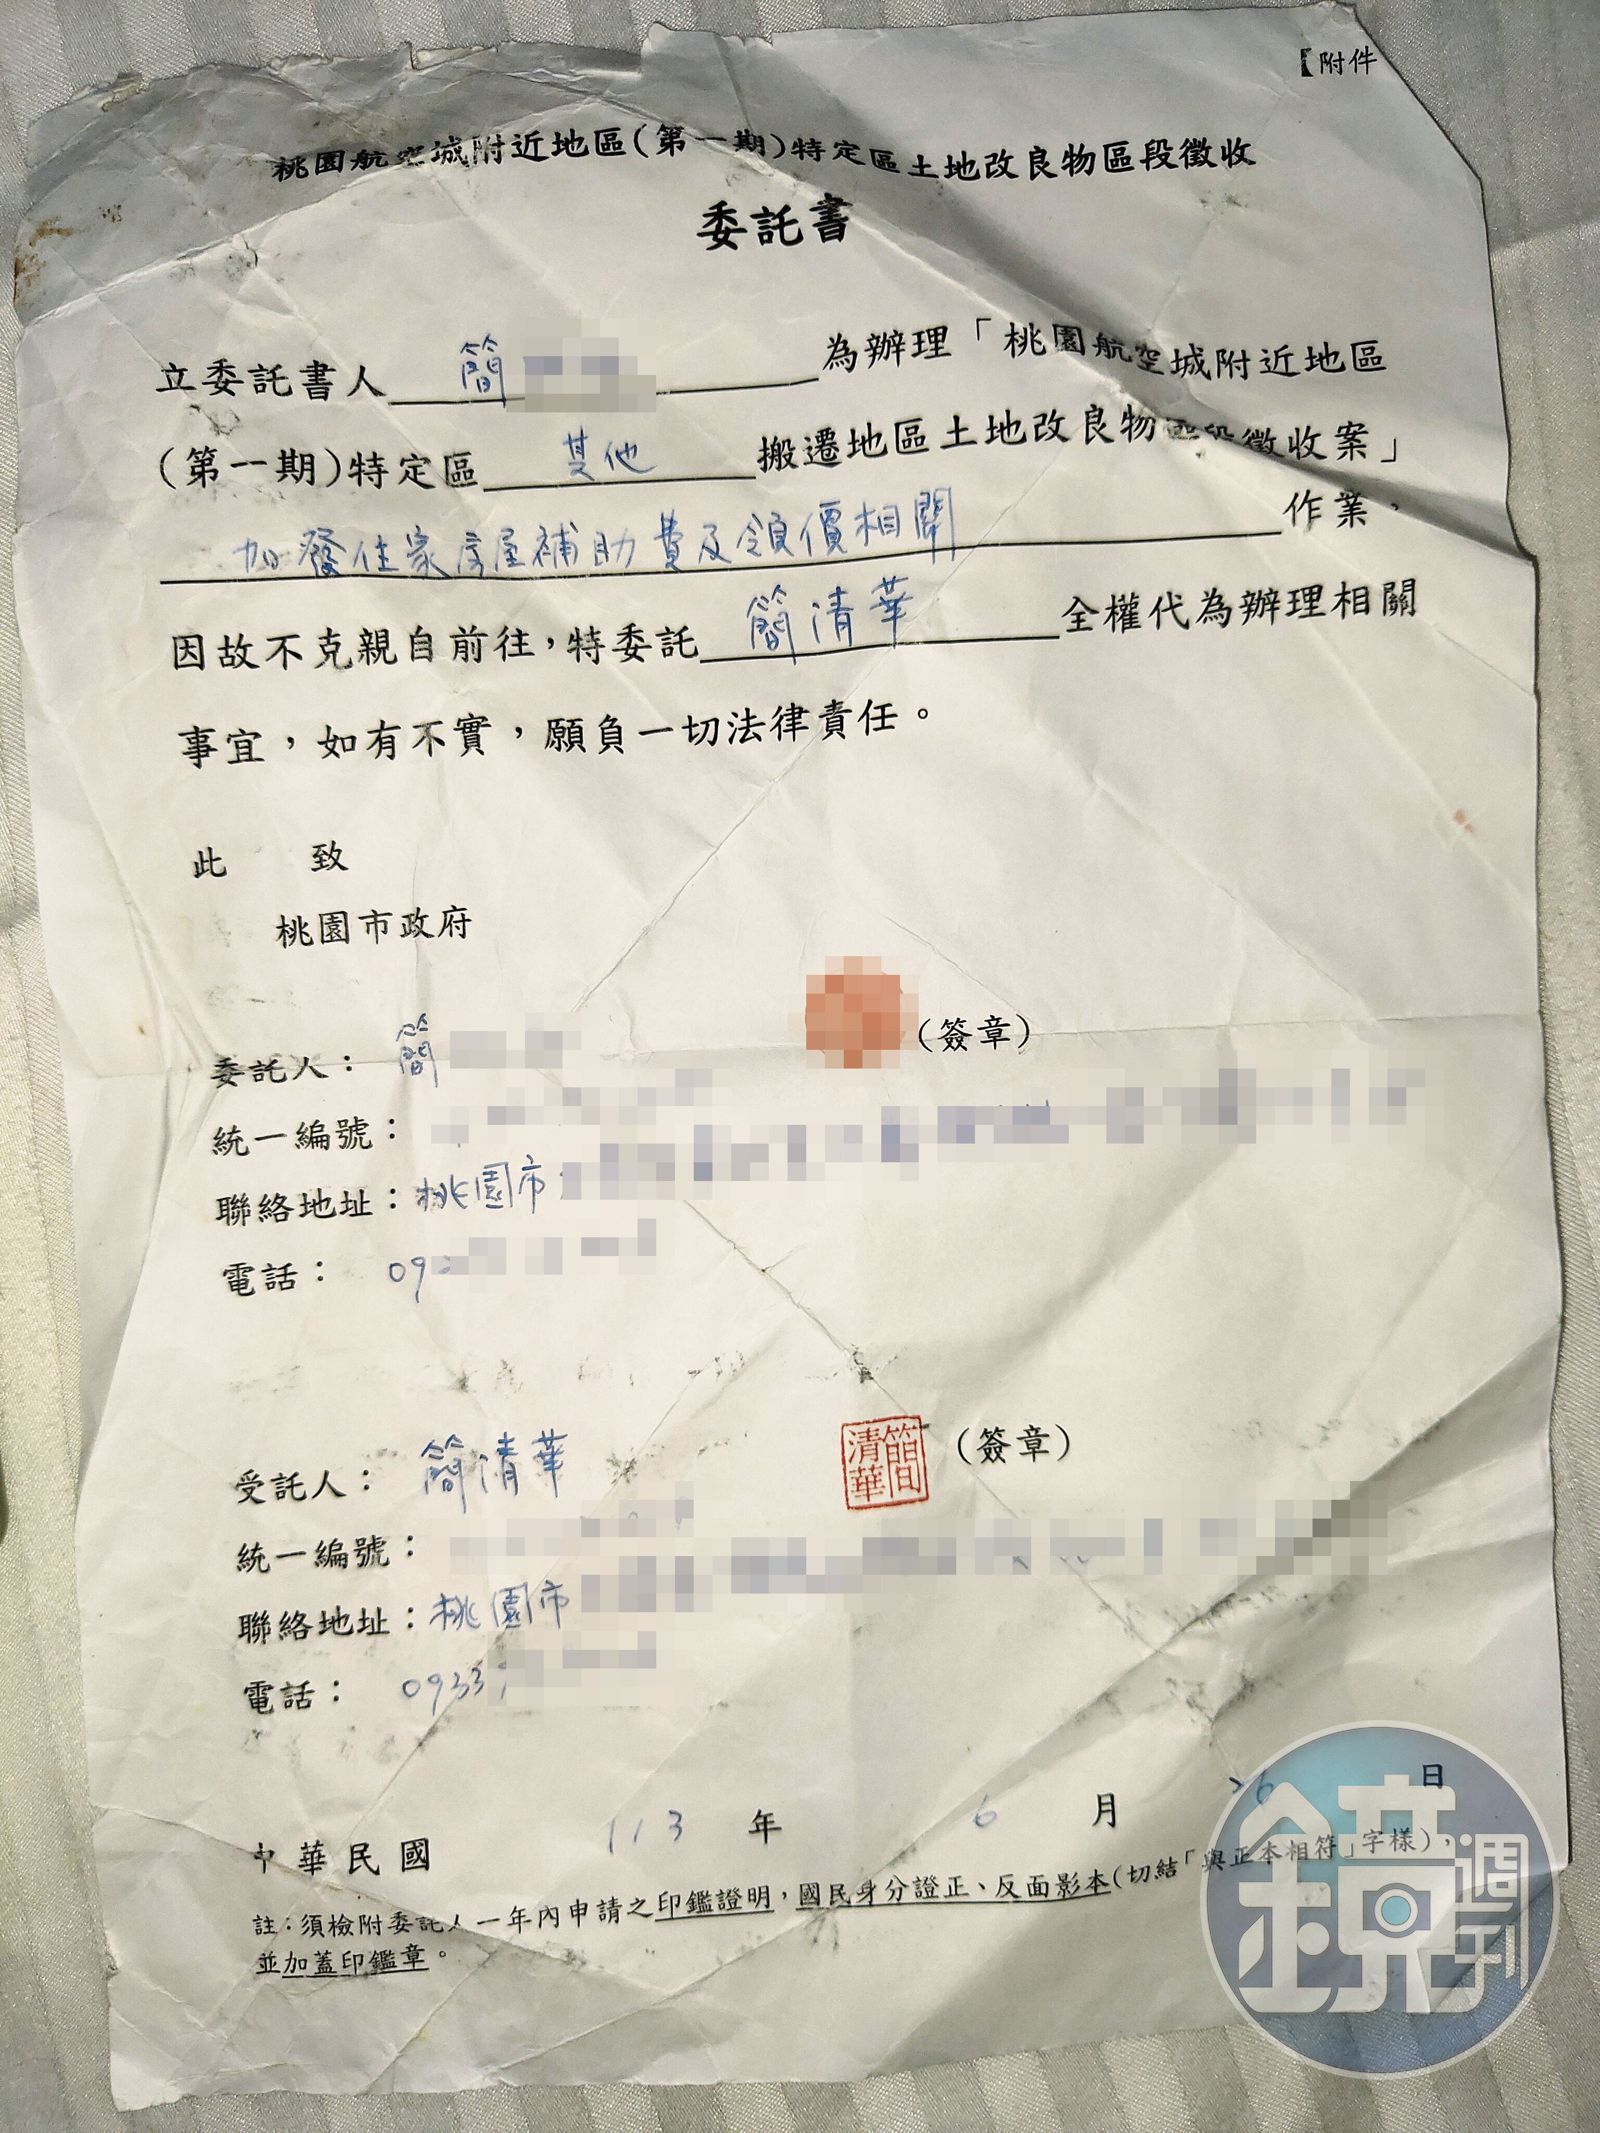 【附件
桃園航空城附近地區(第一期)特定區土地改良物區段徵收
委託書
立委託書人 簡 為辦理「桃園航空城附近地區
(第一期)特定區 其他 搬遷地區土地改良物區段徵收案」
加發住家房屋補助費及領價相關 作業，
因故不克親自前往，特委託 簡清華 全權代為辦理相關
事宜，如有不實，願負一切法律責任。
此 致
桃園市政府
委託人： 簡 (簽章)
統一編號：
聯絡地址：桃園市
電話： 09
受託人： 簡清華 簡清華 (簽章)
統一編號：
聯絡地址：桃園市
電話： 0933
中華民國 113 年 6 月 26 日
註：須檢附委託人一年內申請之印鑑證明，國民身分證正、反面影本(切結「與正本相符」字樣)，
並加蓋印鑑章。
鏡週刊